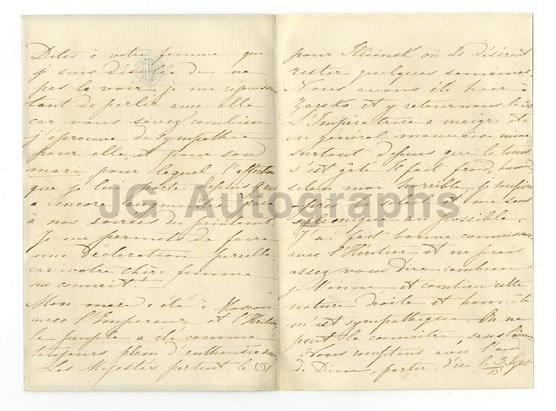 Dites à votre femme que
je suis désolée de ne
pas la voir, je me
tant de parler avec elle
car vous savez combien
j'éprouve de sympathie
pour elle et pour son
mari pour lequel l'affection
que je lui porte depuis
a encore augmenté
à nos soirées du printemps
Je me permets de faire
une Déclaration pareille
car votre chère femme
me connait!
Mon mari a été à Moscou
avec l'Empereur et l'héritier
le peuple a été comme
toujours plein d'enthousiasme
Les Majestés partent le
pour où Ils désirent
rester quelques semaines.
Nous avons été hier à
Zarskoé et y retournons le 30
l'Impératrice a maigri et
en général mauvaise mine
surtout depuis que le tems
s'est gâté. Il fait froid,
selon moi horrible, je
et me sens
possible.
J'ai fait bonne connaissance
avec l'Héritier et ne puis
assez vous dire combien
je l'aime et combien cette
nature droite et honnête
m'est sympathique. On ne
peut le connaître sans l'aimer.
Nous comptons avec l'aide
de Dieu partir d'ici le 3 Sept
15
JG Autographs